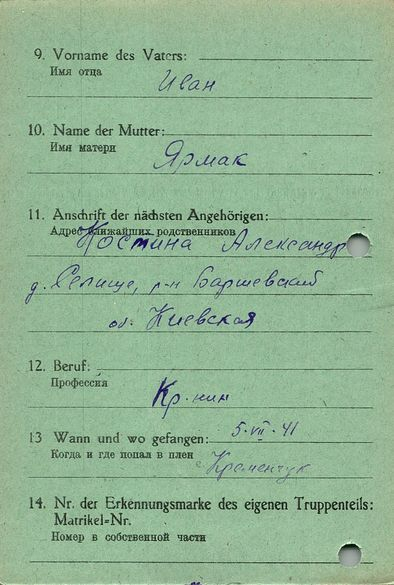 9. Vorname des Vaters:
Имя отца
Иван
10. Name der Mutter:
Имя матери
Ярмак
11. Anschrift der nächsten Angehörigen:
Адрес ближайших родственников
Костина Александр
д. Селище, р-н Баршевский
об. Киевская
12. Beruf:
Профессия
Кр-нин
13 Wann und wo gefangen: 5-VII-41
Когда и где попал в плен
с Кременчук
14. Nr. der Erkennungsmarke des eigenen Truppenteils:
Matrikel=Nr.
Номер в собственной части